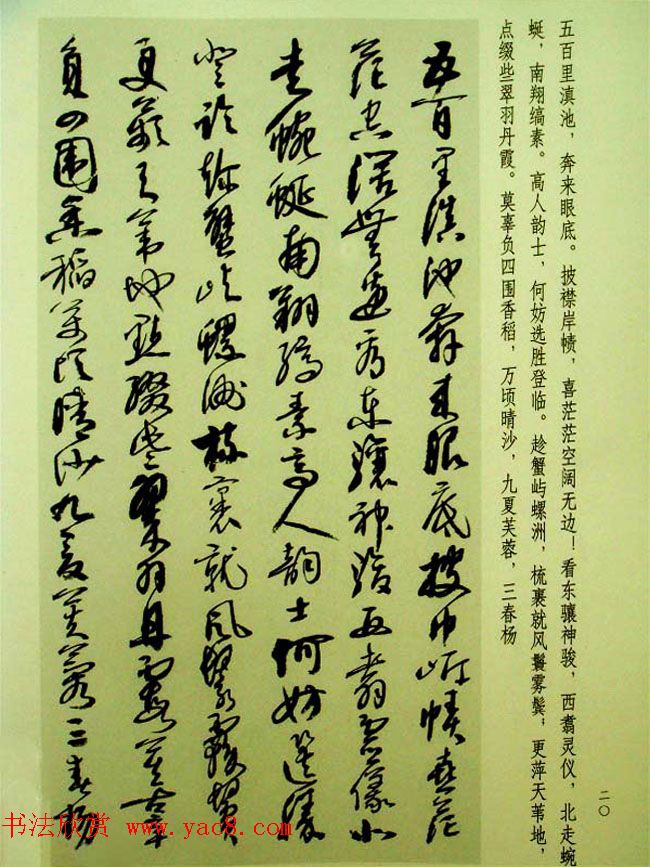 五百里滇池，奔来眼底。披襟岸帻，喜茫茫空阔无边！看东骧神骏，西翥灵仪，北走蜿
蜒，南翔缟素。高人韵士，何妨选胜登临。趁蟹屿螺洲，梳裹就风鬟雾鬓；更萍天苇地，
点缀些翠羽丹霞。莫辜负四围香稻，万顷晴沙，九夏芙蓉，三春杨
二〇
五百里滇池奔来眼底披巾岸帻喜茫
茫空阔無边看东骧神骏西翥灵仪北
走蜿蜒南翔缟素高人韵士何妨选胜
登临趁蟹屿螺洲梳裹就风鬟雾鬓
更蘋天苇地点缀些翠羽丹霞莫辜
负四围香稻万顷晴沙九夏芙蓉三春杨
书法欣赏 www.yac8.com